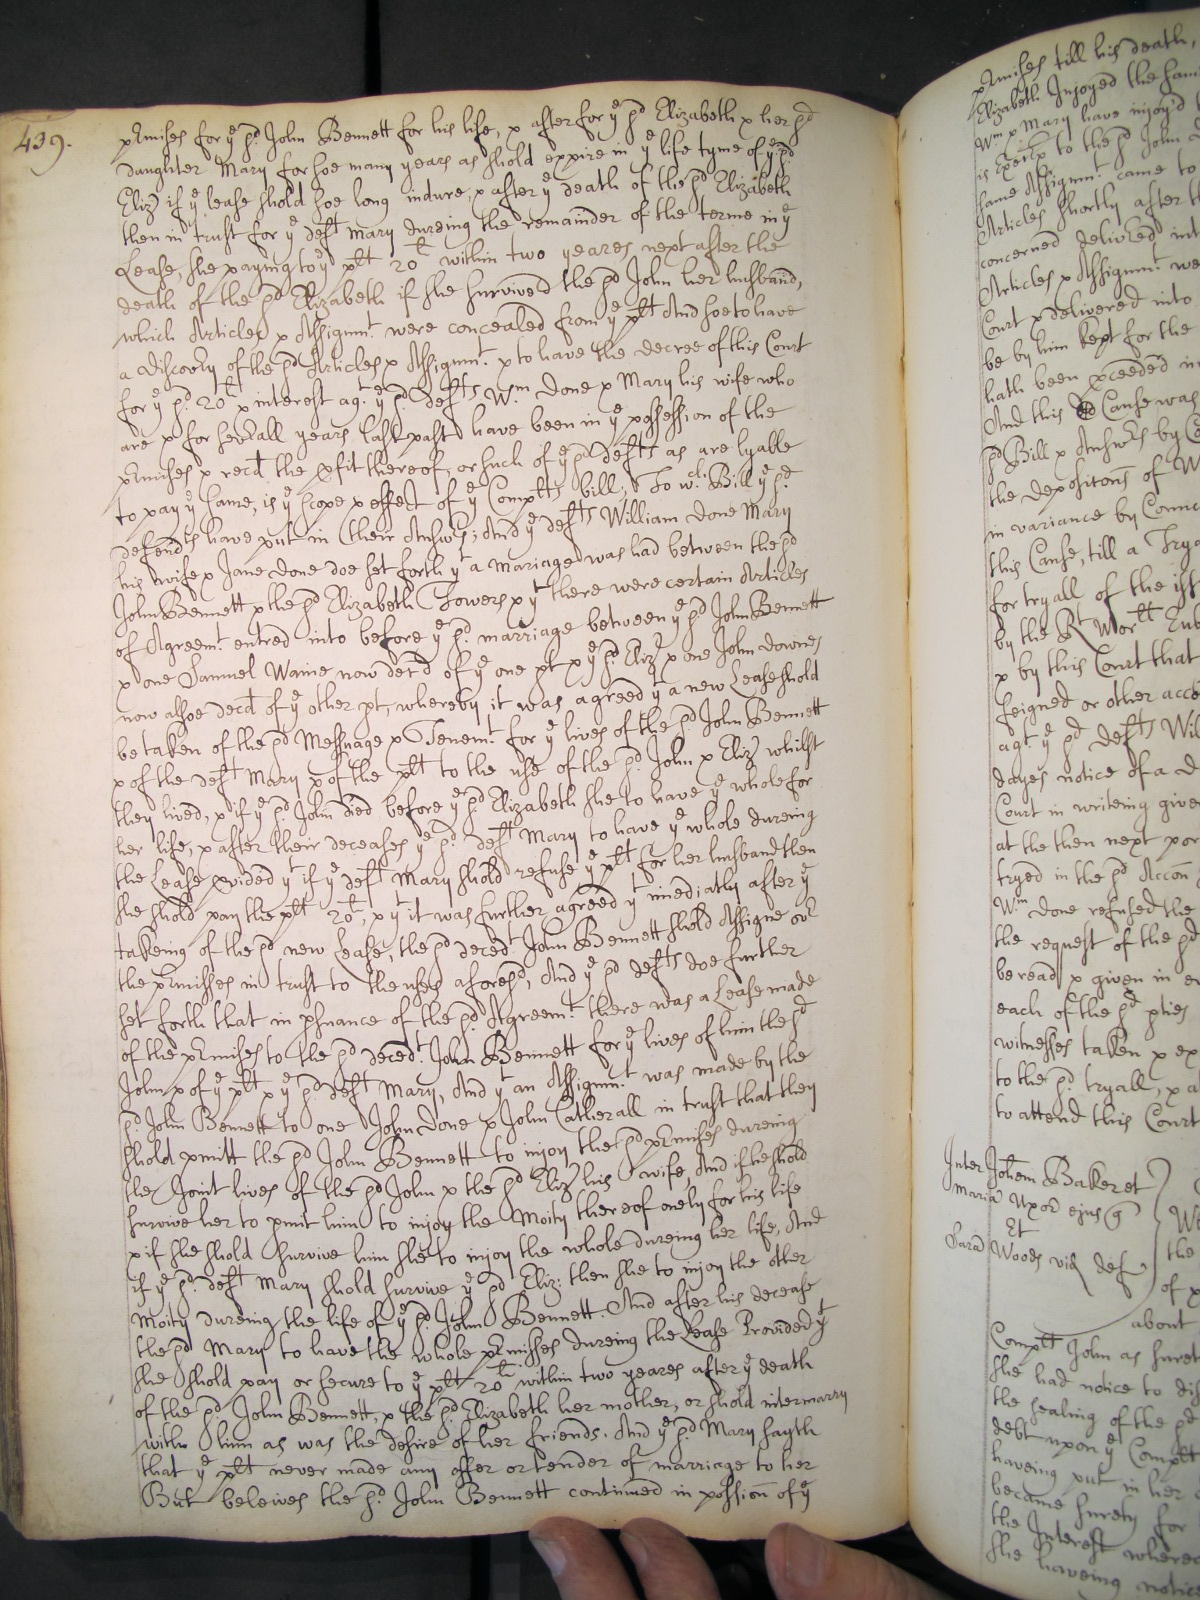 439.
p'misses for ye sd. John Bennett for his life, & after for ye sd Elizabeth & her sd
daughter Mary for soe many years as shold expire in ye life tyme of ye sd
Eliz if ye lease shold soe long indure, & after ye death of the sd Elizabeth
then in trust for ye deft Mary dureing the remainder of the terme in ye
Lease, she paying to ye plt 20l within two yeares next after the
death of the sd Elizabeth if she survived the sd John her husband,
which Articles & Assignmt were concealed from ye plt And soe to have
a discovry of the sd Articles & Assignmt & to have the decree of this Court
for ye sd. 20l & interest agt. ye sd. defts Wm. Done & Mary his wife who
are & for severall years last past have been in ye possession of the
p'misses & recd the pfit thereof, or such of ye sd defts as are lyable
to pay ye same, is ye scope & effect of ye Complts bill, To wch. Bill ye sd.
defendts have put in their Answrs, And ye defts William Done Mary
his wife & Jane Done doe set forth yt a mariage was had between the sd
John Bennett & the sd Elizabeth Towers & yt there were certain Articles
of Agreemt. entred into before ye sd. marriage between ye sd John Bennett
& one Samuel Warne now decd of ye one pt & ye sd Eliz & one John Downes
now alsoe decd of ye other pt, whereby it was agreed yt a new Lease shold
be taken of the sd Messuage & Tenemt. for ye lives of the sd John Bennett
& of the deft Mary & of the plt to the use of the sd. John & Eliz whilst
they lived, & if ye sd. John died before ye sd Elizabeth she to have ye whole for
her life, & after their deceases ye sd. deft Mary to have ye whole dureing
the Lease pvided yt if ye deft Mary shold refuse ye plt for her husband then
she shold pay the plt 20l, & yt it was further agreed yt imediatly after ye
takeing of the sd new Lease, the sd decedt John Bennett shold Assigne ovr
the p'misses in trust to the uses aforesd, And ye sd defts doe further
set forth that in psuance of the sd. Agreemt. there was a Lease made
of the p'misses to the sd decedt. John Bennett for ye lives of him the sd
John & of ye plt & ye sd. deft Mary, And yt an Assignmt. was made by the
sd John Bennett to one John Done & John Catherall in trust that they
shold pmitt the sd John Bennett to injoy the sd p'misses dureing
the Joint lives of the sd John & the sd Eliz his wife, And if he shold
survive her to pmit him to injoy the Moity thereof onely for his life
& if she shold survive him she to injoy the whole dureing her life, And
if ye sd. deft Mary shold survive ye sd Eliz: then she to injoy the other
Moity dureing the life of ye sd. John Bennett. And after his decease
the sd Mary to have the whole p'misses dureing the Lease Provided yt
she shold pay or secure to ye plt 20li within two yeares after ye death
of the sd. John Bennett, & the sd. Elizabeth her mother, or shold intermarry
with him as was the desire of her friends. And ye sd. Mary sayth
that ye plt never made any offer or tender of marriage to her
But beleives the sd. John Bennett continued in possion of ye
p'misses till his death,
Elizabeth Injoyed the same
Wm & Mary have injoy'd
is Execr to the sd John
same Assignmt. came to
Articles shortly after
concerned delivred int
Articles & Assignmt. we
Court & delivered into
be by him kept for the
hath been pceeded in
And this Cause was
sd Bill & Answrs by
the depositons of W
in variance by Counc
this Cause, till a Trya
for tryall of the iss
by the Rt Worll
& by this Court that
feigned or other acc
agt. ye sd defts Wil
dayes notice of a
Court in writeing give
at the then next
tryed in the sd Accon
Wm Done refused the
the request of the sd
be read & given in e
each of the sd pties
witnesses taken & ex
to the sd. tryall, & a
to attend this Court
Inter Johem Baker et
Maria Uxor ejus
Et
Sara Woods vid def
We
the
of
about
Complt John as suret
she had notice to dis
the sealing of the sd
debt upon ye Complt
haveing put in her
became surety for
the Interest where
she haveing notice